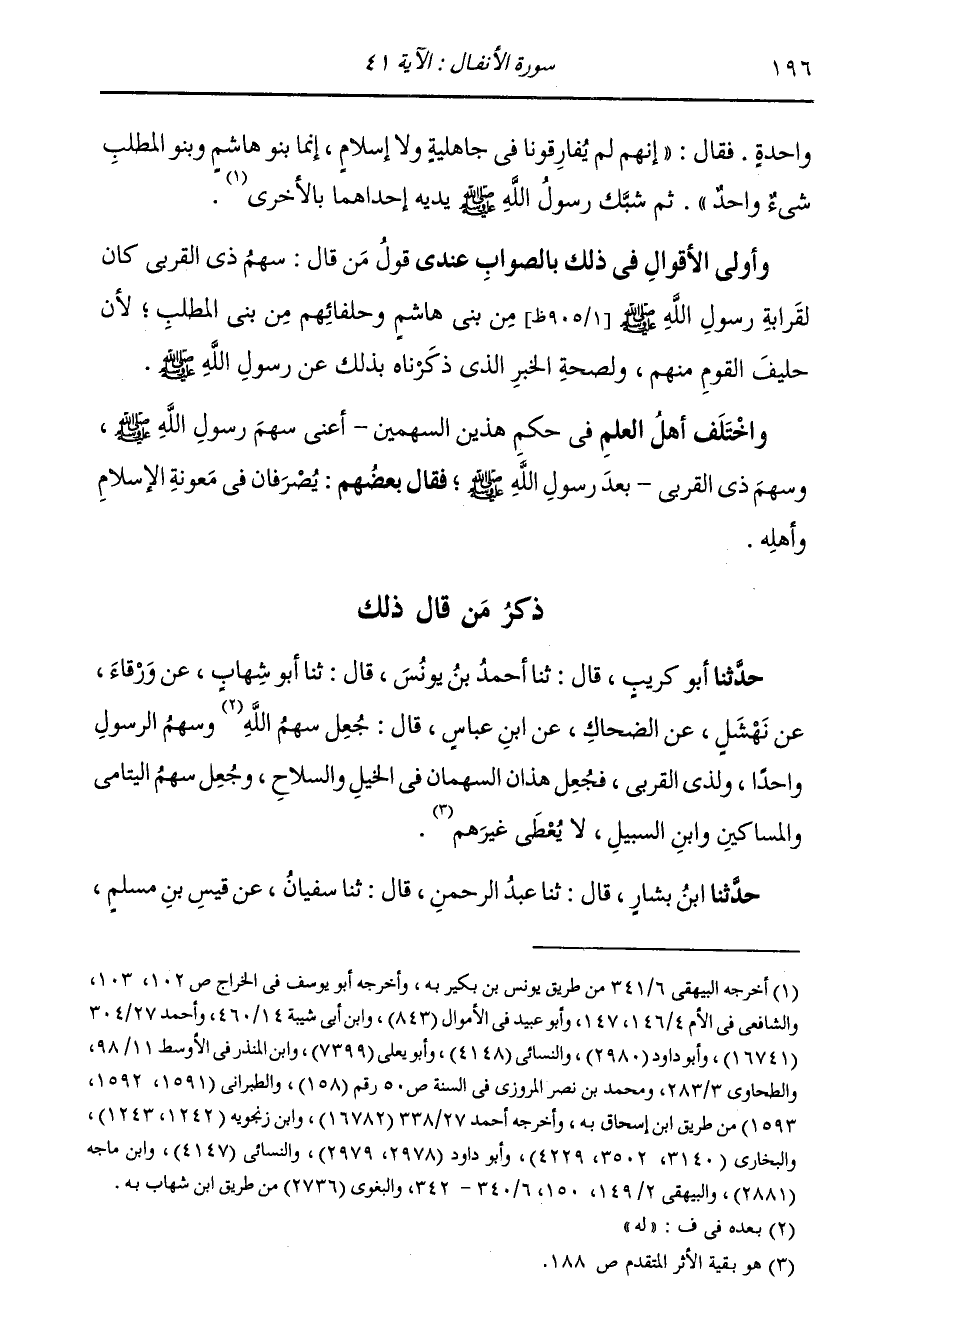 ١٩٦
سورة الأنفال : الآية ٤١
واحدةٍ . فقال : « إنهم لم يُفارِقونا فى جاهليةٍ ولا إسلامٍ ، إنما بنو هاشمٍ وبنو المطلبِ
شىءٌ واحدٌ » . ثم شبَّك رسولُ اللَّهِ ﷺ يديه إحداهما بالأخرى(١) .
وأولى الأقوالِ فى ذلك بالصوابِ عندى قولُ مَن قال : سهمُ ذى القربى كان
لقَرابةِ رسولِ اللَّهِ ﷺ [٩٠٥/١ظ] مِن بنى هاشمٍ وحلفائِهم مِن بنى المطلبِ ؛ لأن
حليفَ القومِ منهم ، ولصحةِ الخبرِ الذى ذكَرْناه بذلك عن رسولِ اللَّهِ ﷺ .
واخْتَلَف أهلُ العلمِ فى حكمِ هذين السهمين - أعنى سهمَ رسولِ اللَّهِ ﷺ ،
وسهمَ ذى القربى - بعدَ رسولِ اللَّهِ ﷺ ؛ فقال بعضُهم : يُصْرَفان فى مَعونةِ الإسلامِ
وأهلِه .
ذكرُ مَن قال ذلك
حدَّثنا أبو كريبٍ ، قال : ثنا أحمدُ بنُ يونُسَ ، قال : ثنا أبو شِهابٍ ، عن وَرْقاءَ ،
عن نَهْشَلٍ ، عن الضحاكِ ، عن ابنِ عباسٍ ، قال : جُعِل سهمُ اللَّهِ(٢) وسهمُ الرسولِ
واحدًا ، ولذى القربى ، فجُعِل هذان السهمان فى الخيلِ والسلاحِ ، وجُعِل سهمُ اليتامى
والمساكينِ وابنِ السبيلِ ، لا يُعْطَى غيرَهم(٣) .
حدَّثنا ابنُ بشارٍ ، قال : ثنا عبدُ الرحمنِ ، قال : ثنا سفيانُ ، عن قيسِ بنِ مسلمٍ ،
(١) أخرجه البيهقى ٣٤١/٦ من طريق يونس بن بكير به ، وأخرجه أبو يوسف فى الخراج ص ١٠٢، ١٠٣،
والشافعى فى الأم ١٤٦/٤، ١٤٧، وأبو عبيد فى الأموال (٨٤٣) ، وابن أبى شيبة ٤٦٠/١٤، وأحمد ٣٠٤/٢٧
(١٦٧٤١) ، وأبو داود (٢٩٨٠) ، والنسائى (٤١٤٨) ، وأبو يعلى (٧٣٩٩) ، وابن المنذر فى الأوسط ٩٨/١١،
والطحاوى ٢٨٣/٣، ومحمد بن نصر المروزى فى السنة ص ٥٠ رقم (١٥٨) ، والطبرانى (١٥٩١، ١٥٩٢،
١٥٩٣) من طريق ابن إسحاق به ، وأخرجه أحمد ٣٣٨/٢٧ (١٦٧٨٢) ، وابن زنجويه (١٢٤٢، ١٢٤٣) ،
والبخارى (٣١٤٠، ٣٥٠٢، ٤٢٢٩) ، وأبو داود (٢٩٧٨، ٢٩٧٩) ، والنسائى (٤١٤٧) ، وابن ماجه
(٢٨٨١) ، والبيهقى ١٤٩/٢، ١٥٠، ٣٤٠/٦ - ٣٤٢، والبغوى (٢٧٣٦) من طريق ابن شهاب به .
(٢) بعده فى ف : « له »
(٣) هو بقية الأثر المتقدم ص ١٨٨.